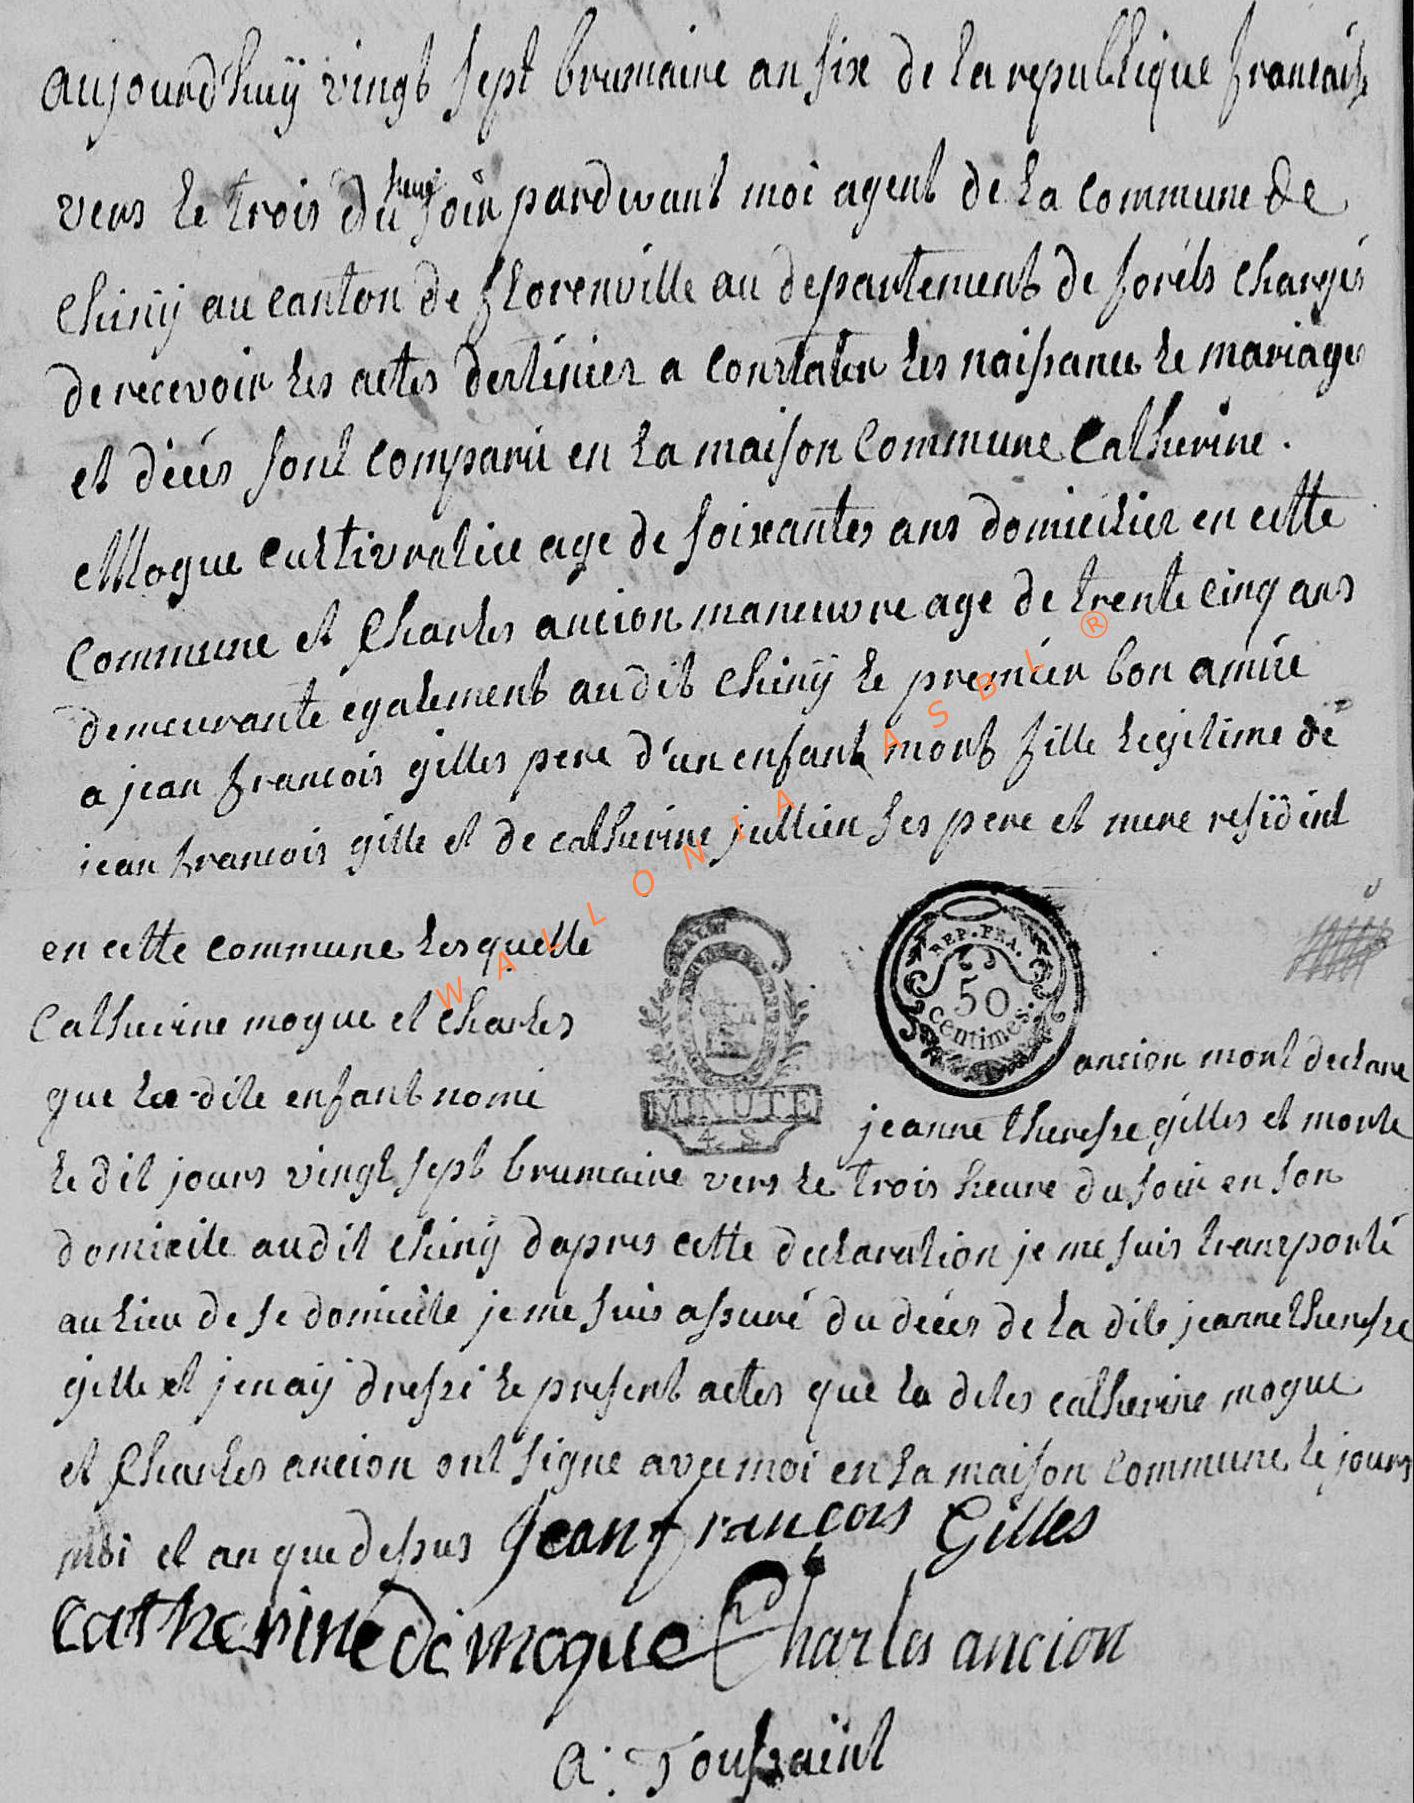 aujourd'huÿ vingt sept brumaire an six de la republique francaise
vers le trois du heure soir pardevant moi agent de la commune de
chinÿ au canton de florenville au departement de foréts chargés
de recevoir les actes destinier a constater les naissances le mariages
et décés sont comparu en la maison commune Catherine
Moque cultivratice age de soixantes ans domicilier en cette
commune et Charles ancion maneuvre age de trente cinq ans
demeurante également audit chinÿ le premier bon amie
a jean francois gilles pere d'un enfant mort fille legitime de
jean francois gille et de catherine jullien ses pere et mere residint
en cette commune lesquelle
Catherine moque et Charles
ancion mont declare
que la dite enfant nomé
jeanne theresse gilles et morte
le dit jours vingt sept brumaire vers le trois heure du soir en son
domicile audit chinÿ dapres cette declaration je me suis transporté
au lieu de se domicile je me suis assuré du décés de la dite jeanne theresse
gille et jen aÿ dressé le present actes que la dites catherine moque
et Charles ancion ont signe avec moi en la maison commune le jours
moi et an que dessus Jean francois Gilles
catherine de moque Charles ancion
A: Toussaint
REP. FRA.
50
centimes.
MINUTE
WALLONIA ASBL ®